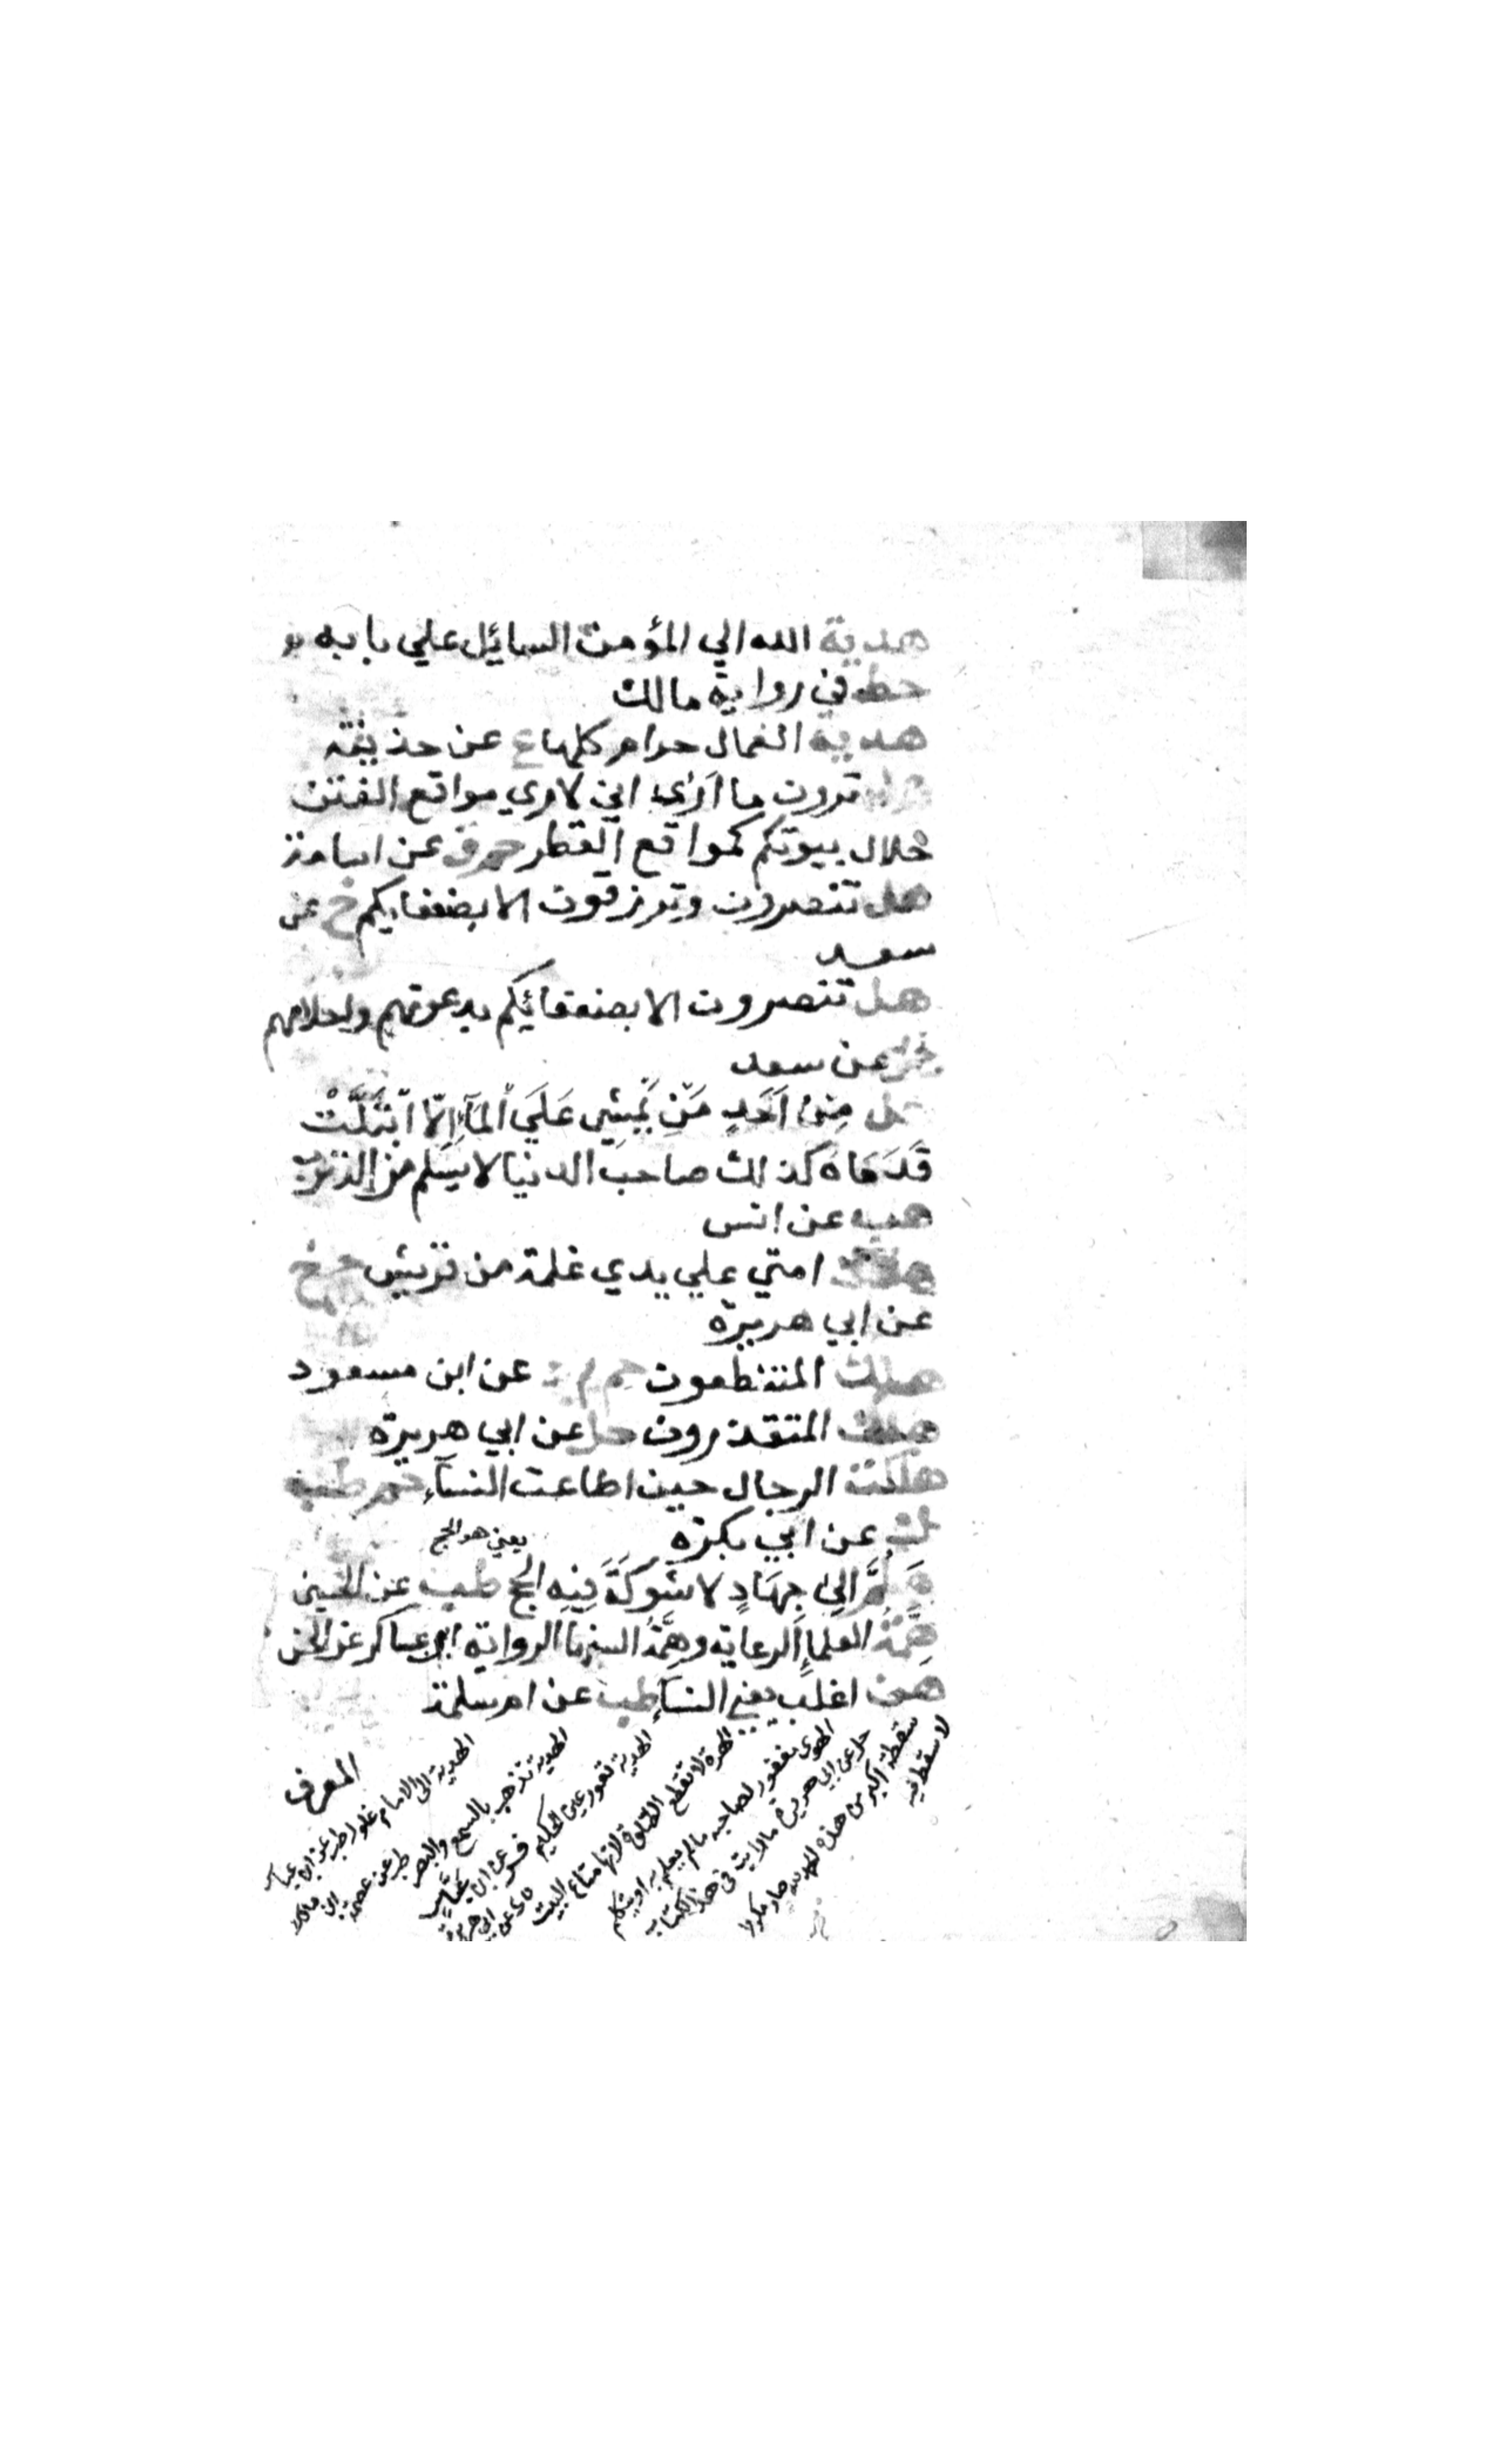 هدية الله الي المؤمن السائل علي بابه
خط في رواية مالك
هدية العمال حرام كلها ع عن حذيفة
ترون ما أري اني لاري مواقع الفتن
خلال بيوتكم كمواقع القطر حم ق عن اسامة
هل تنصرون وترزقون الا بضعفايكم خ عن
سعد
هل تنصرون الا بضعفائكم بدعوتهم واخلاصهم
عن سعد
هل مِن اَحَدٍ مَن يَمشِي عَلَي المآءِ اِلّا ابتَلَّتْ
قَدَمَاه كذلك صاحب الدنيا لا يسلم من الذنوب
هب عن انس
هلاك امتي علي يدي غلمة من قريش حم خ
عن ابي هريرة
هلك المتنطعون حم م د عن ابن مسعود
هلك المتقذرون حل عن ابي هريرة
هلكت الرجال حين اطاعت النسآء حم طب
ك عن ابي بكرة
يعني هو الحج
هَلُمَّ اِلىٰ جِهَادٍ لا شَوكَةَ فِيهِ الحج طب عن الحسين
هِمَّةُ العلماءِ الرعاية وهِمَّةُ السفهآ الرواية ابن عساكر عن الحسن
هن اغلب يعني النسآء طب عن ام سلمة
المعرف
الهدية الى الامام غلول طب عن ابن عباس
الهدية تذهب بالسمع والبصر طب عن عصمة ابن مالك
الهدية تعور عين الحكيم فر عن ابن عباس
الهرة لا تقطع الصلوة لانها متاع البيت ه ك عن ابي هريرة
الهوى مغفور لصاحبه ما لم يعمل به او يتكلم
حل عن ابي هريرة ما رايت في هذا الكتاب
سقطة اكبر من هذه
لا سقط فيه